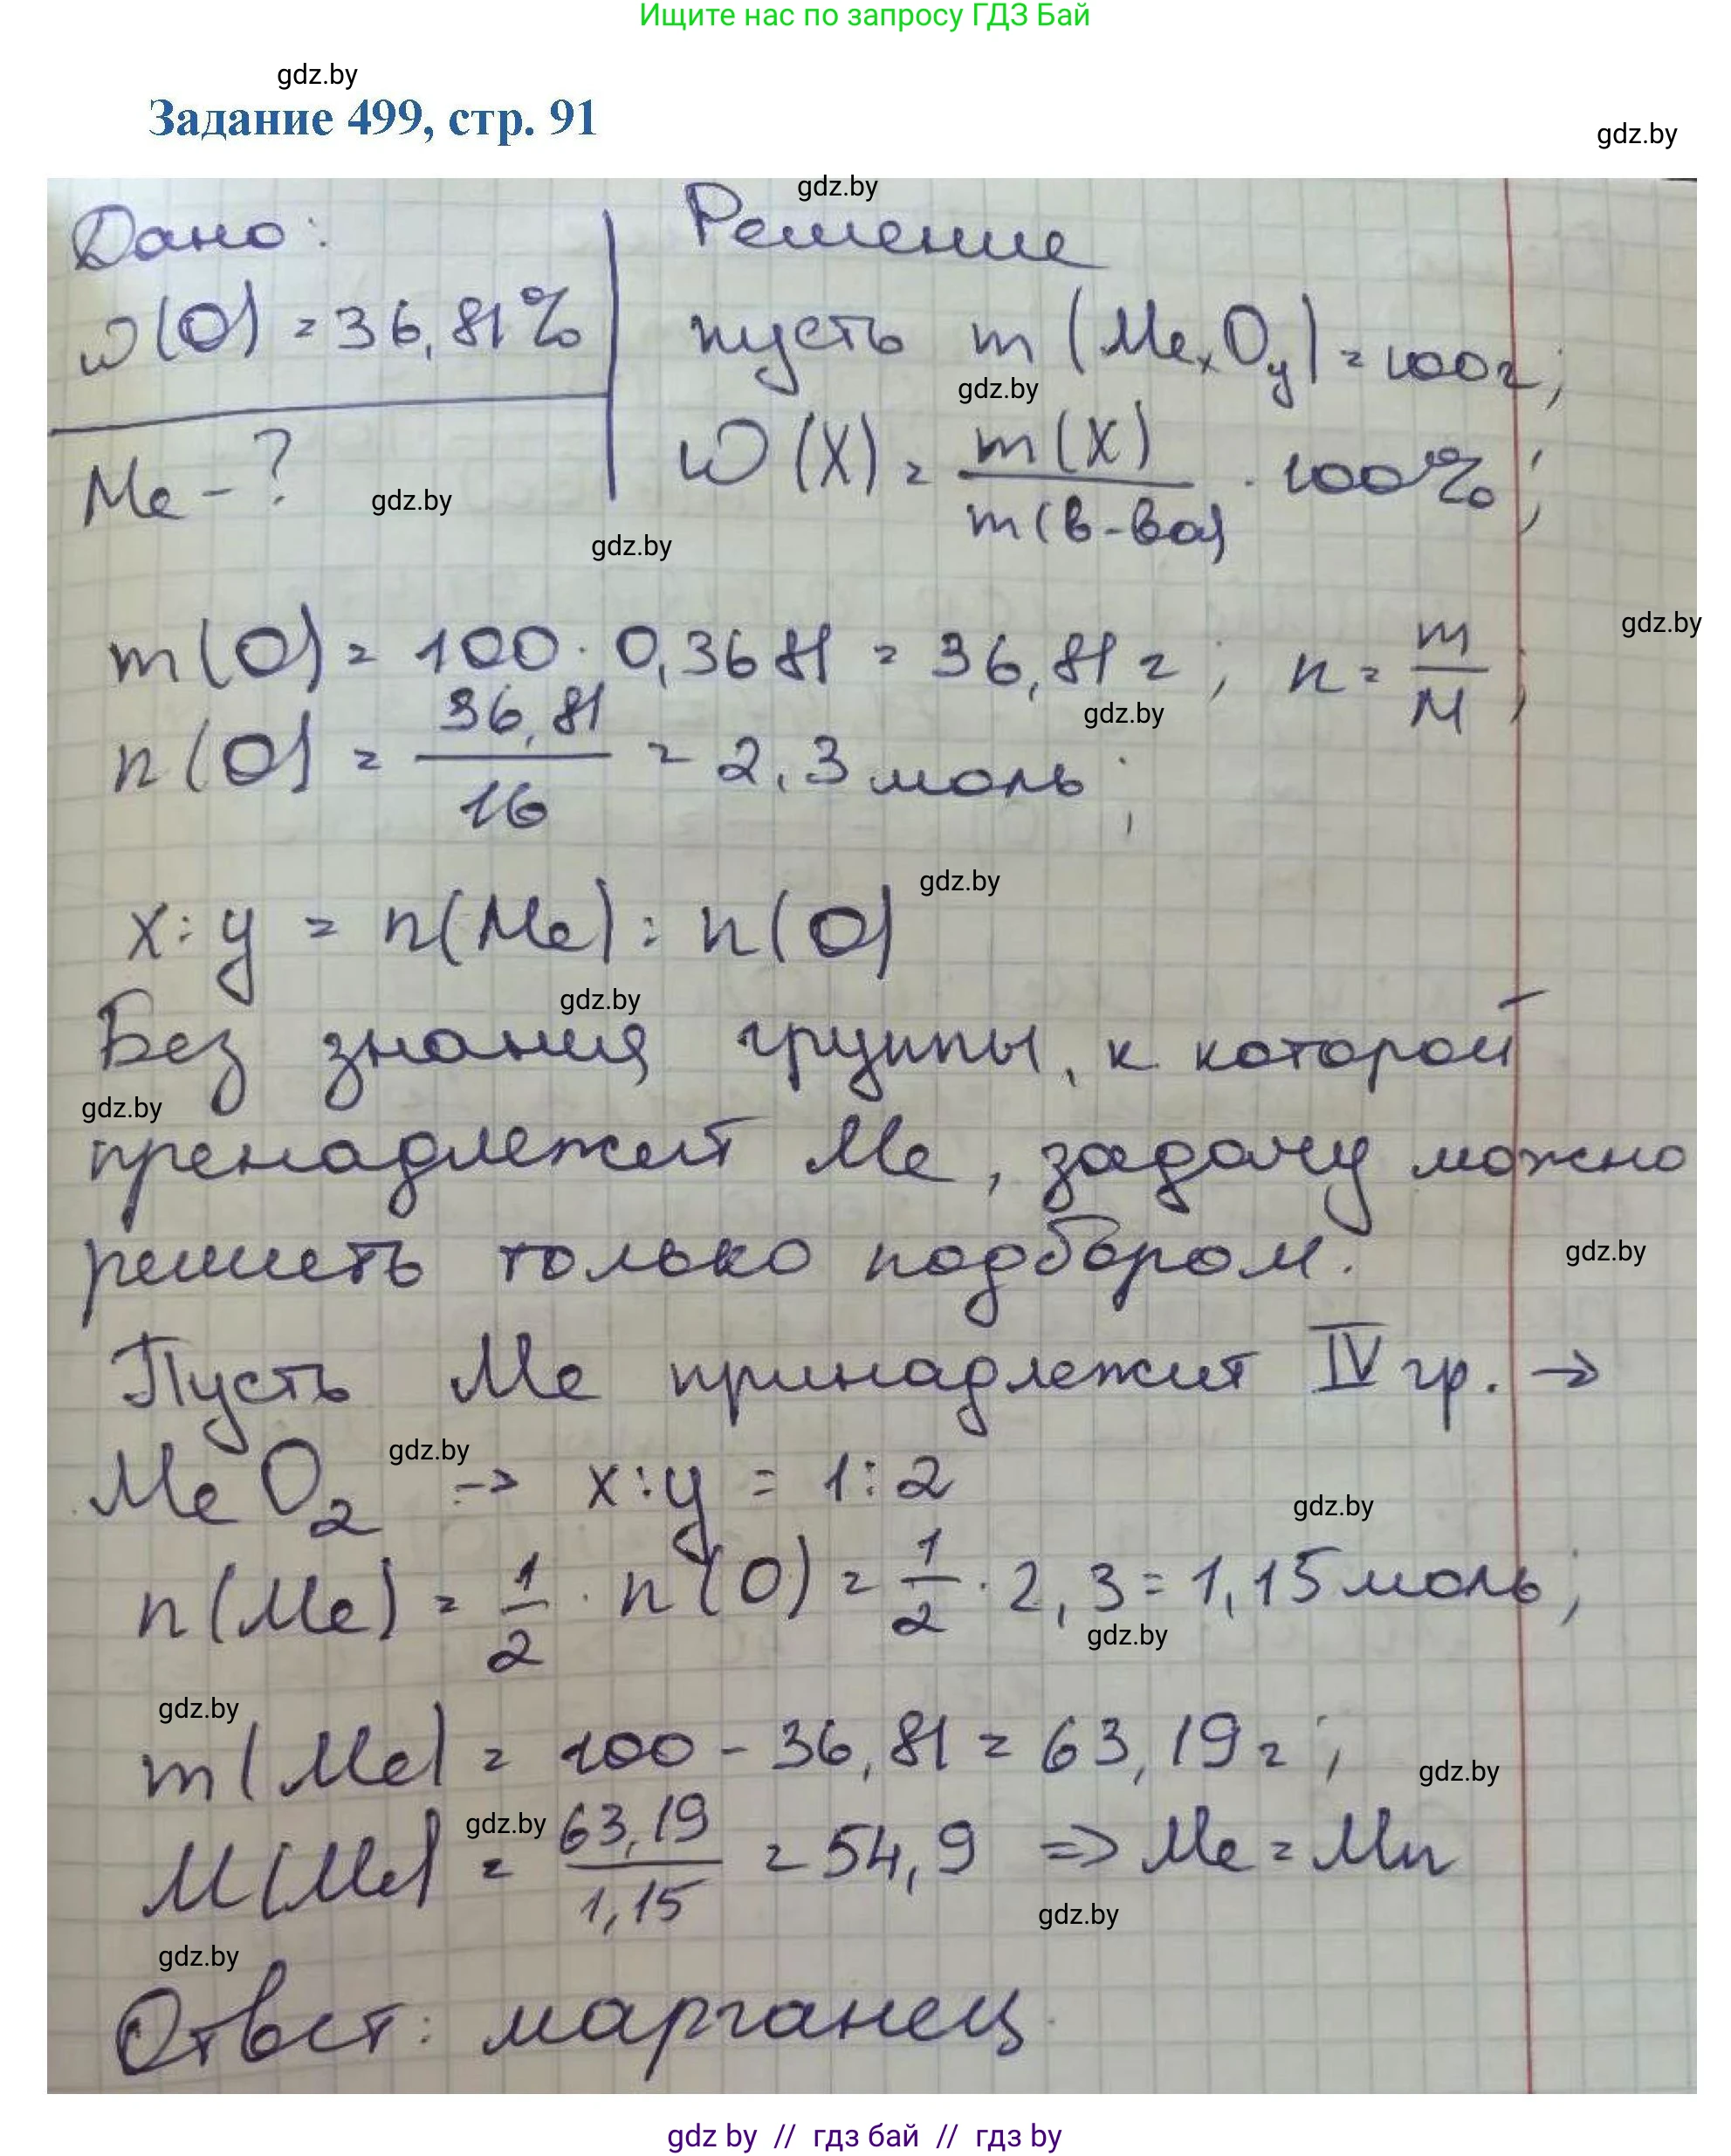 Ищите нас по запросу ГДЗ Бай
gdz.by
Задание 499, стр. 91
gdz.by
gdz.by
Дано:
Решение
ω(O) = 36,81%
пусть m(MeₓOᵧ) = 100г;
gdz.by
Me - ?
ω(X) = m(X) / m(в-ва) · 100%;
gdz.by
gdz.by
m(O) = 100 · 0,3681 = 36,81 г; n = m / M;
gdz.by
gdz.by
n(O) = 36,81 / 16 = 2,3 моль;
x : y = n(Me) : n(O)
gdz.by
gdz.by
Без знания группы, к которой
gdz.by
пренадлежит Me, задачу можно
решить только подбором.
gdz.by
Пусть Me принадлежит IV гр. →
MeO₂ → x : y = 1 : 2
gdz.by
gdz.by
n(Me) = 1/2 · n(O) = 1/2 · 2,3 = 1,15 моль;
gdz.by
gdz.by
m(Me) = 100 - 36,81 = 63,19 г;
gdz.by
gdz.by
M(Me) = 63,19 / 1,15 = 54,9 => Me = Mn
gdz.by
gdz.by
Ответ: марганец
gdz by // гдз бай // гдз by